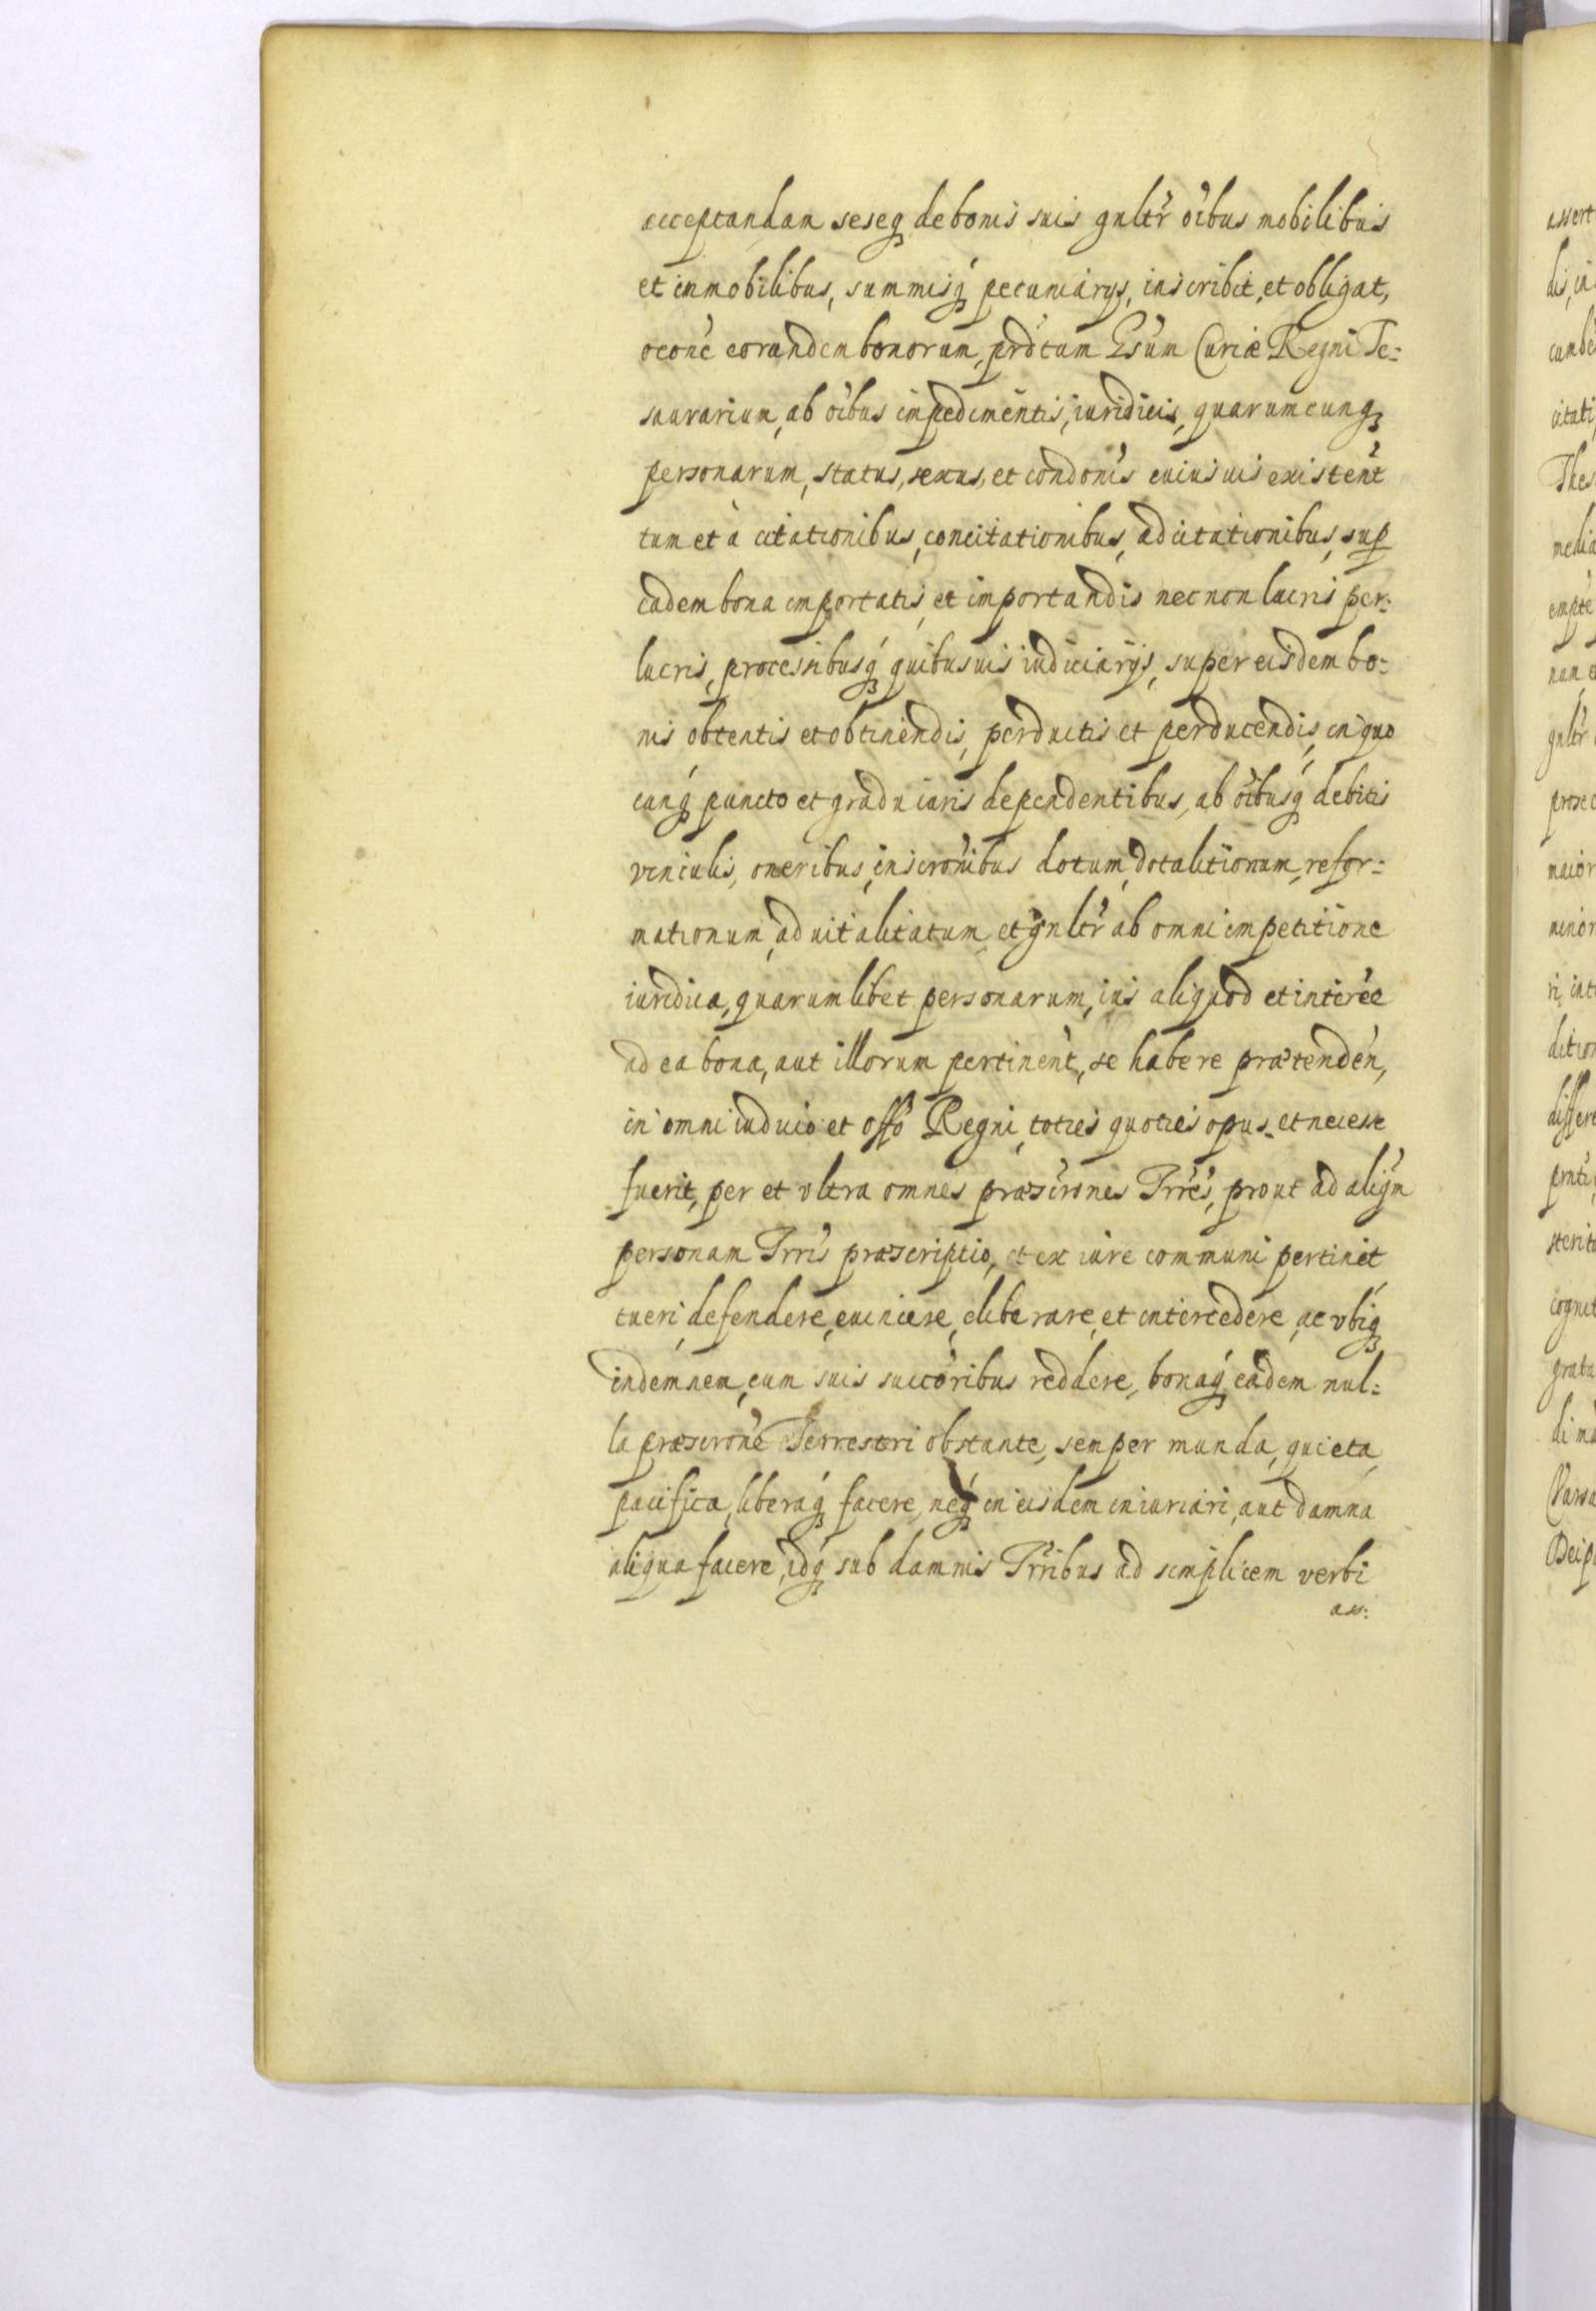 acceptandam seseq; de bonis suis gnltr oibus mobilibus
et inmobilibus, summisq; pecuniarys, inscribit, et obligat,
oconè eorundem bonorum, prdctum Gsum Curiæ Regni Te=
saurarium, ab oibus impedimentis, iuridicis, quarumcunq;
personarum, status, sexus, et condonis cuiusuis existent
tum et à citationibus, concitationibus, adcitationibus, sup
eadem bona importatis, et importandis necnon lucris per=
lucris, processibusq; quibusuis iudiciarijs, super eisdem bo=
nis obtentis et obtinendis, perductis et perducendis, in quo
cunq; puncto et gradu iuris dependentibus, ab oibusq; debitis
vinculis, oneribus, inscronibus dotum, dotalitionum, refor=
mationum, aduitalitatum, et gnltr ab omni impetitione
iuridica, quarumlibet personarum, ius aliquod et interèe
ad ea bona, aut illorum pertinent, se habere prætenden,
in omni iudicio et offo Regni, toties quoties opus et necesse
fuerit, per et vltra omnes præscrones Trres, prout ad aliqm
personam Trris præscriptio, et ex iure communi pertinet
tueri, defendere, euincere, eliberare, et intercedere, ac vbiq;
indemnem, cum suis succoribus reddere, bonaq; eadem nul=
la præscrone Terrestri obstante, semper munda, quieta,
pacifica, liberaq; facere, neq; in eisdem iniuriari, aut damna
aliqua facere, idq; sub damnis Trribus ad simplicem verbi
as: